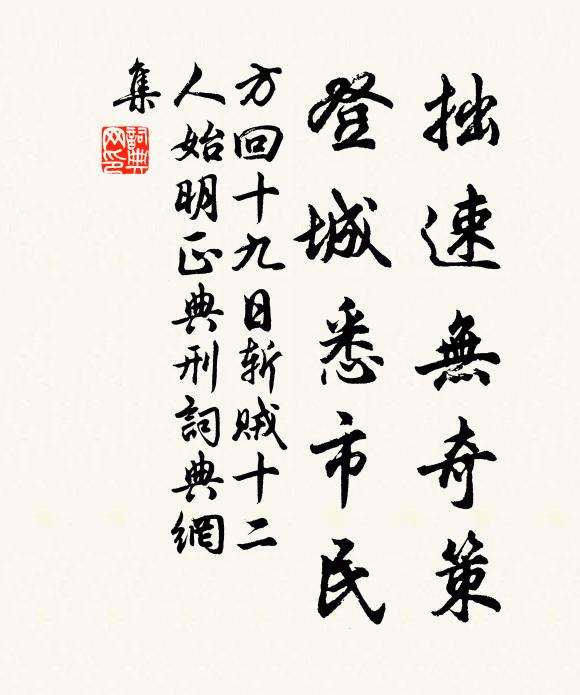 拙速無奇策
登城悉市民
方回十九日斬賊十二
人始明正典刑詞典網
集
詞典
网印